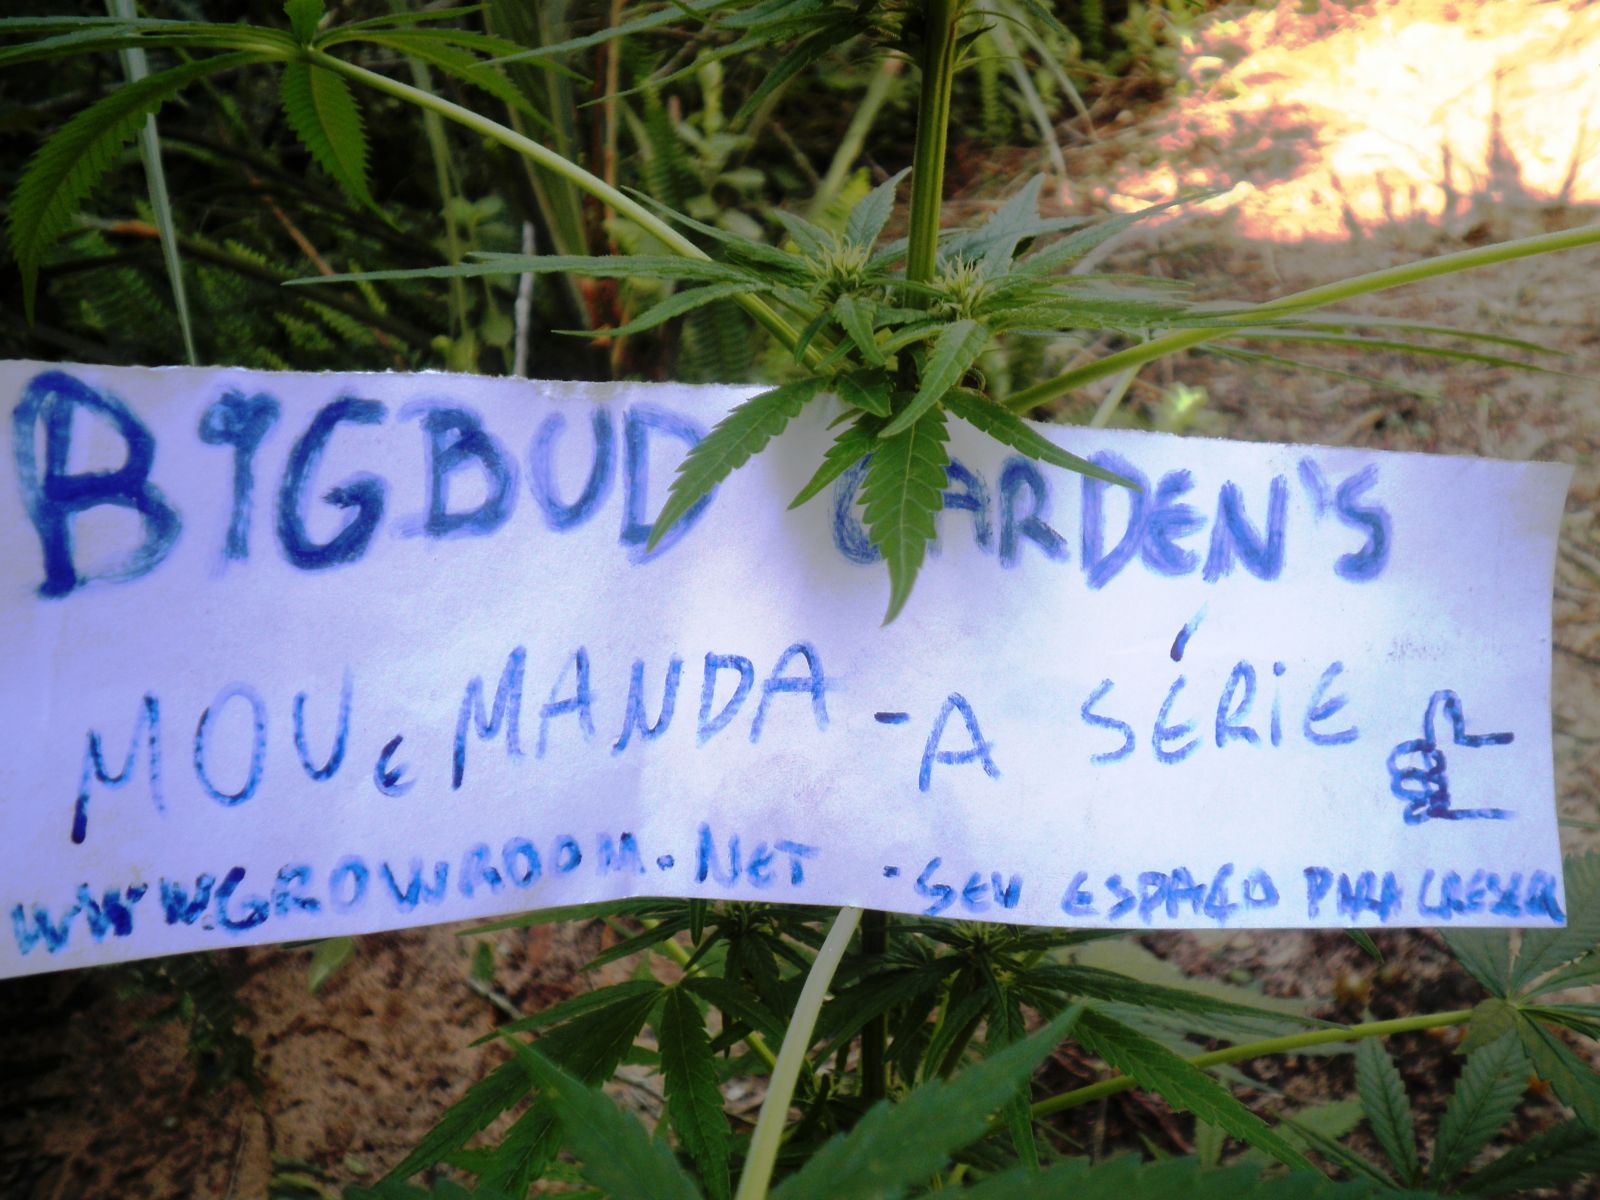 BIGBUD GARDEN'S
MOVE MANDA - A SÉRIE
WWW.GROWROOM.NET - SEU ESPAÇO PARA CRESCER